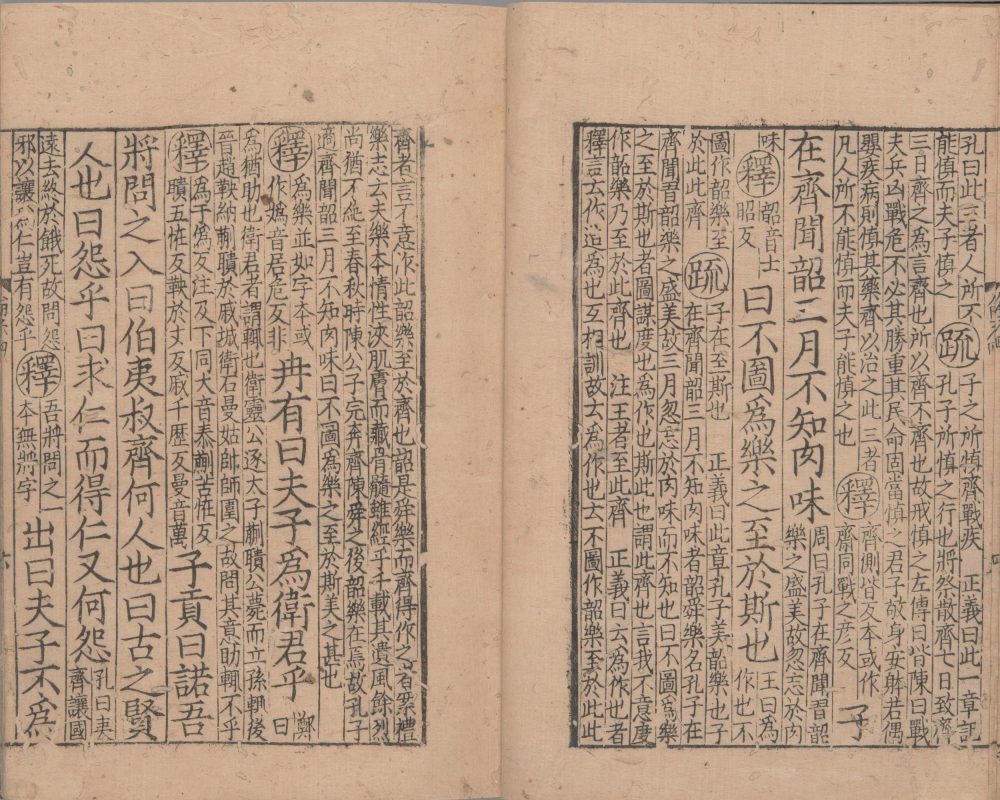 孔曰此三者人所不
能慎而夫子慎之
疏
子之所慎齊戰疾 正義曰此一章記
孔子所慎之行也將祭散齊七日致齊
三日齊之為言齊也所以齊不齊也故戒慎之左傳曰皆陳曰戰
夫兵凶戰危不必其勝重其民命固當慎之君子敬身安體若偶
嬰疾病則慎其藥齊以治之此三者
凡人所不能慎而夫子能慎之也
釋
齊側皆反本或作
齋同戰之彥反
子
在齊聞韶三月不知肉味
周曰孔子在齊聞習韶
樂之盛美故忽忘於肉
味
釋
韶音士
昭反
曰不圖為樂之至於斯也
王曰為
作也不
圖作韶樂至
於此此齊
疏
子在至斯也 正義曰此章孔子美韶樂也子
在齊聞韶三月不知肉味者韶舜樂名孔子在
齊聞習韶樂之盛美故三月忽忘於肉味而不知也曰不圖為樂
之至於斯也者圖謀度也為作也斯此也謂此齊也言我不意度
作韶樂乃至於此齊也 注王者至此齊 正義曰云為作也者
釋言云作造為也互相訓故云為作也云不圖作韶樂至於此此
齊者言不意作此韶樂至於齊也韶是舜樂而齊得作之者案禮
樂志云夫樂本情性浹肌膚而藏骨髓雖經乎千載其遺風餘烈
尚猶不絕至春秋時陳公子完奔齊陳舜之後韶樂在焉故孔子
適齊聞韶三月不知肉味曰不圖為樂之至於斯美之甚也
釋
為樂並如字本或
作媯音居危反非
冉有曰夫子為衛君乎
鄭
曰
為猶助也衛君者謂輒也衛靈公逐大子蒯聵公薨而立孫輒後
晉趙鞅納蒯聵於戚城衛石曼姑帥師圍之故問其意助輒不乎
釋
為于偽反注及下同大音泰蒯苦怪反
聵五怪反鞅於丈反戚千歷反曼音萬
子貢曰諾吾
將問之入曰伯夷叔齊何人也曰古之賢
人也曰怨乎曰求仁而得仁又何怨
孔曰夷
齊讓國
遠去終於餓死故問怨
邪以讓為仁豈有怨乎
釋
吾將問之一
本無將字
出曰夫子不為